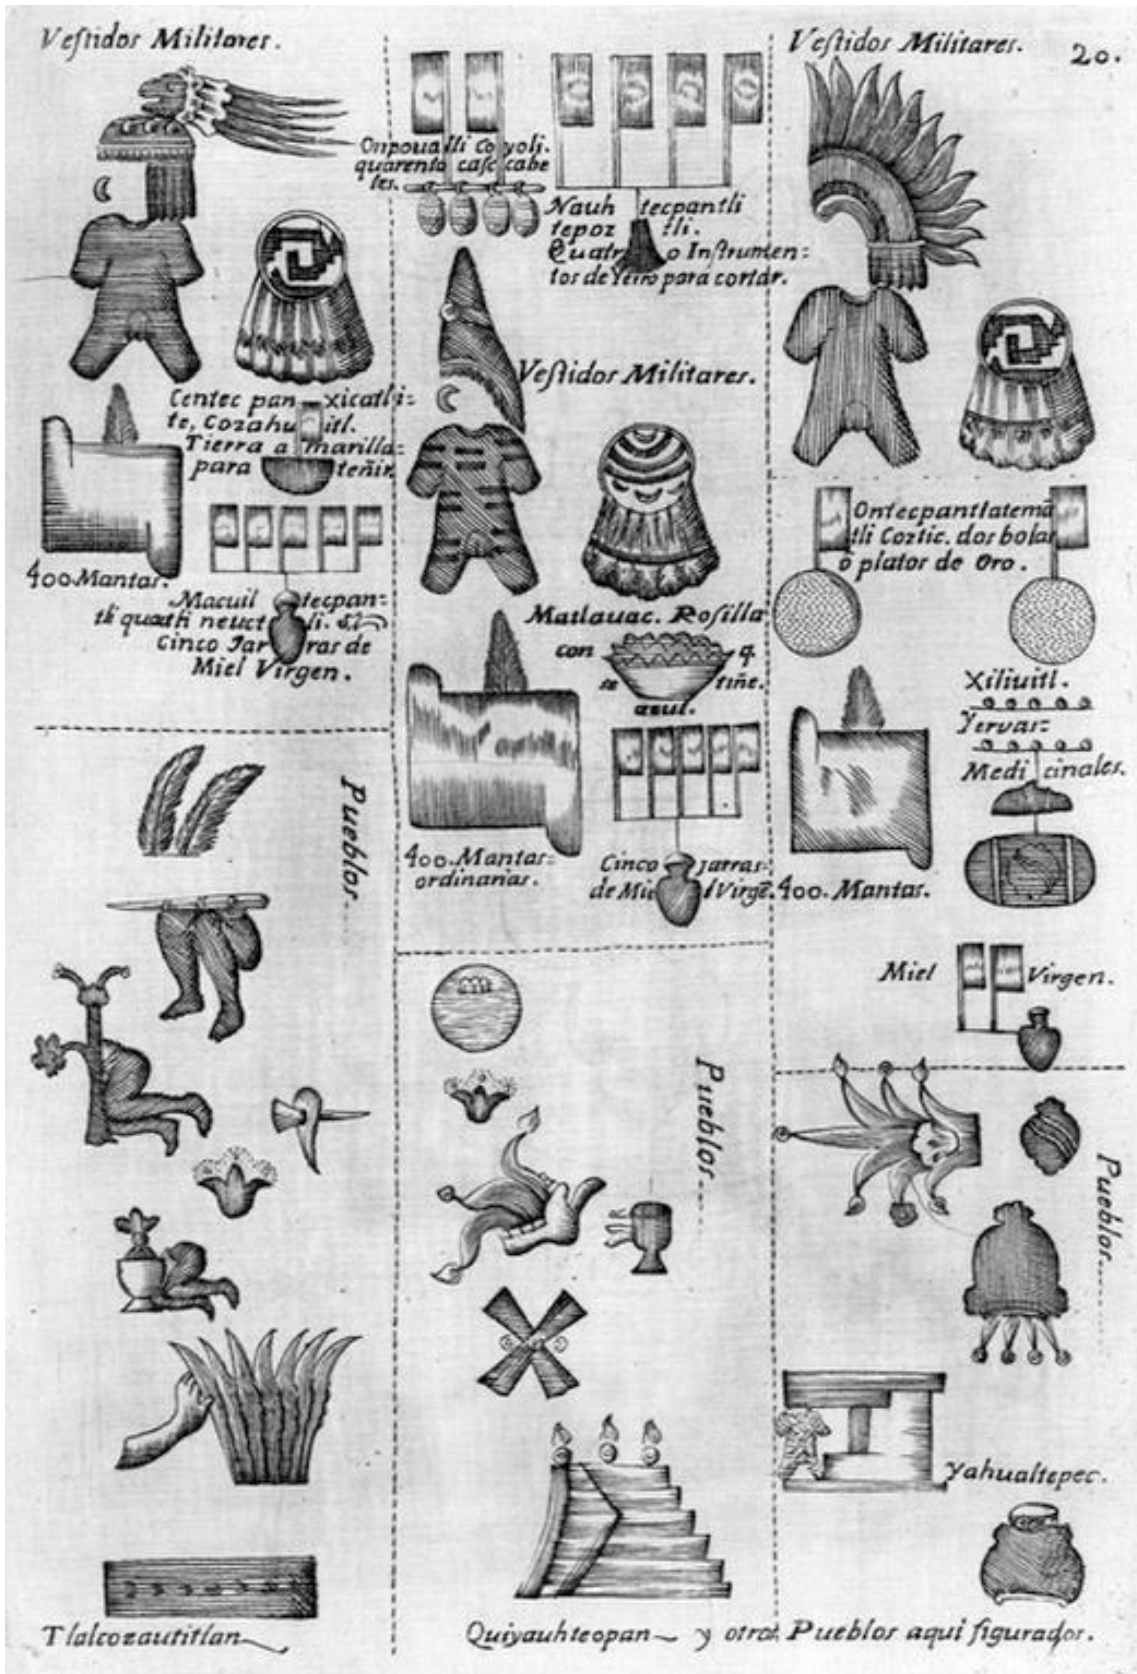 Vestidos Militares.
Centec pan xicatli=
te, Cozahu itl.
Tierra a marilla=
para teñir.
400. Mantas.
Macuil tecpan=
tli quauh neuct li.
Cinco Jar ras de
Miel Virgen.
Pueblos
Tlalcozautitlan
Onpoualli Co yoli.
quarenta casc cabe
les.
Nauh tecpantli
tepoz tli.
Quatr o Instrumen=
tos de Yerro para cortar.
Vestidos Militares.
Matlauac. Rosilla
con q.
se tiñe.
azul.
400. Mantas=
ordinarias.
Cinco Jarras=
de Mie l Virgē.
Pueblos
Quiyauhteopan y otros Pueblos aqui figurados.
Vestidos Militares.
20.
Ontecpantlatemā
tli Coztic. dos bolas
o platos de Oro.
400. Mantas.
Xiliuitl.
Yervas=
Medi cinales.
Miel Virgen.
Pueblos
Yahualtepec.